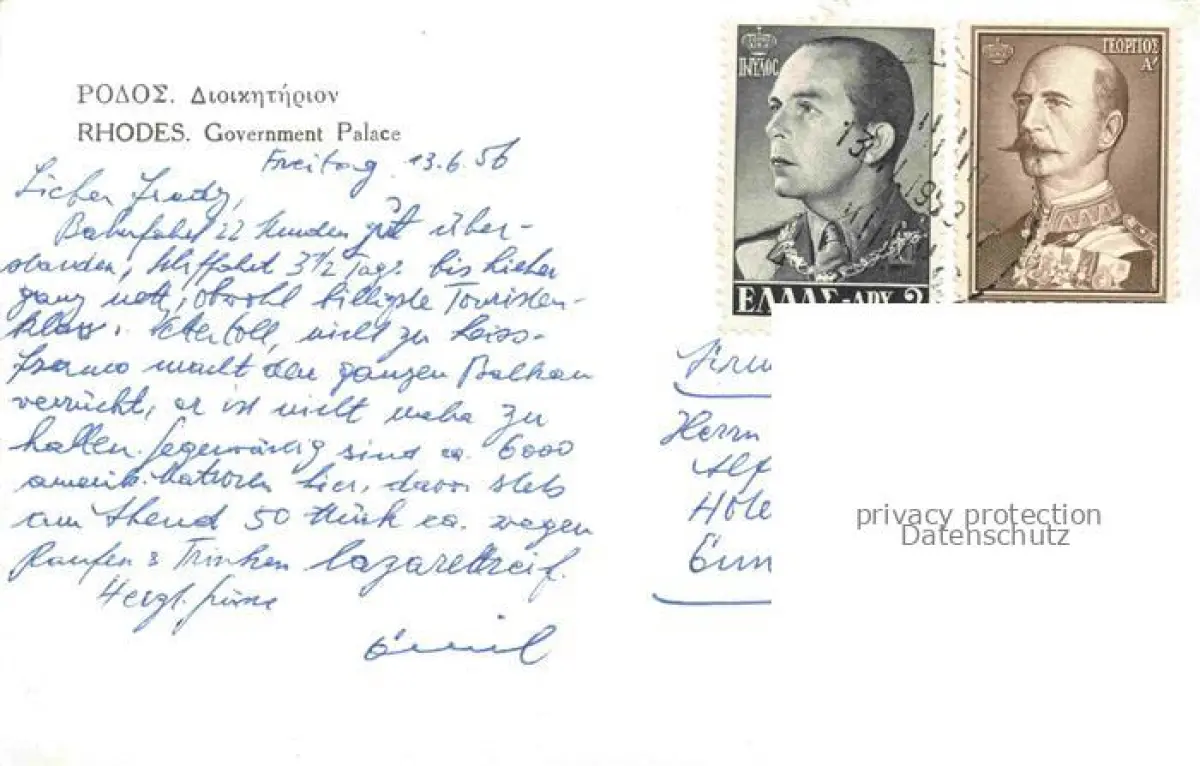 ΡΟΔΟΣ. Διοικητήριον
RHODES. Government Palace
Freitag 13.6.56
Lieber
Bahnfahrt 22 Stunden gut über-
standen, Schiffahrt 3 1/2 Tage bis hieher
ganz nett, obwohl billigste Touristen-
klasse. toll, nicht zu heiss.
macht den ganzen Balkan
verrückt, er ist nicht mehr zu
halten. Gegenwärtig sind ca. 6000
amerik. Matrosen hier, davon stets
am Abend 50 Stück ca. wegen
Raufen & Trinken lazarettreif.
Herzl. Grüsse
Emil
ΠΑΥΛΟΣ
ΕΛΛΑΣ-ΔΡΧ 2
ΓΕΩΡΓΙΟΣ
Α'
Herrn
Alf
privacy protection
Datenschutz